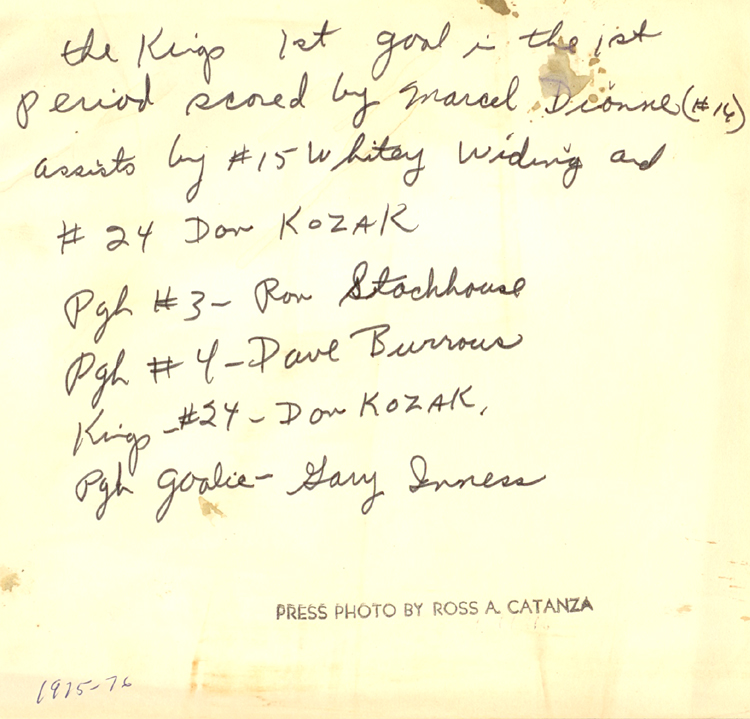 the Kings 1st goal in the 1st
period scored by Marcel Dionne (#16)
assists by #15 Whitey Widing and
# 24 Don KOZAK
Pgh #3- Ron Stackhouse
Pgh # 4-Dave Burrows
Kings -#24- Don KOZAK.
Pgh Goalie- Gary Inness
PRESS PHOTO BY ROSS A. CATANZA
1975-76